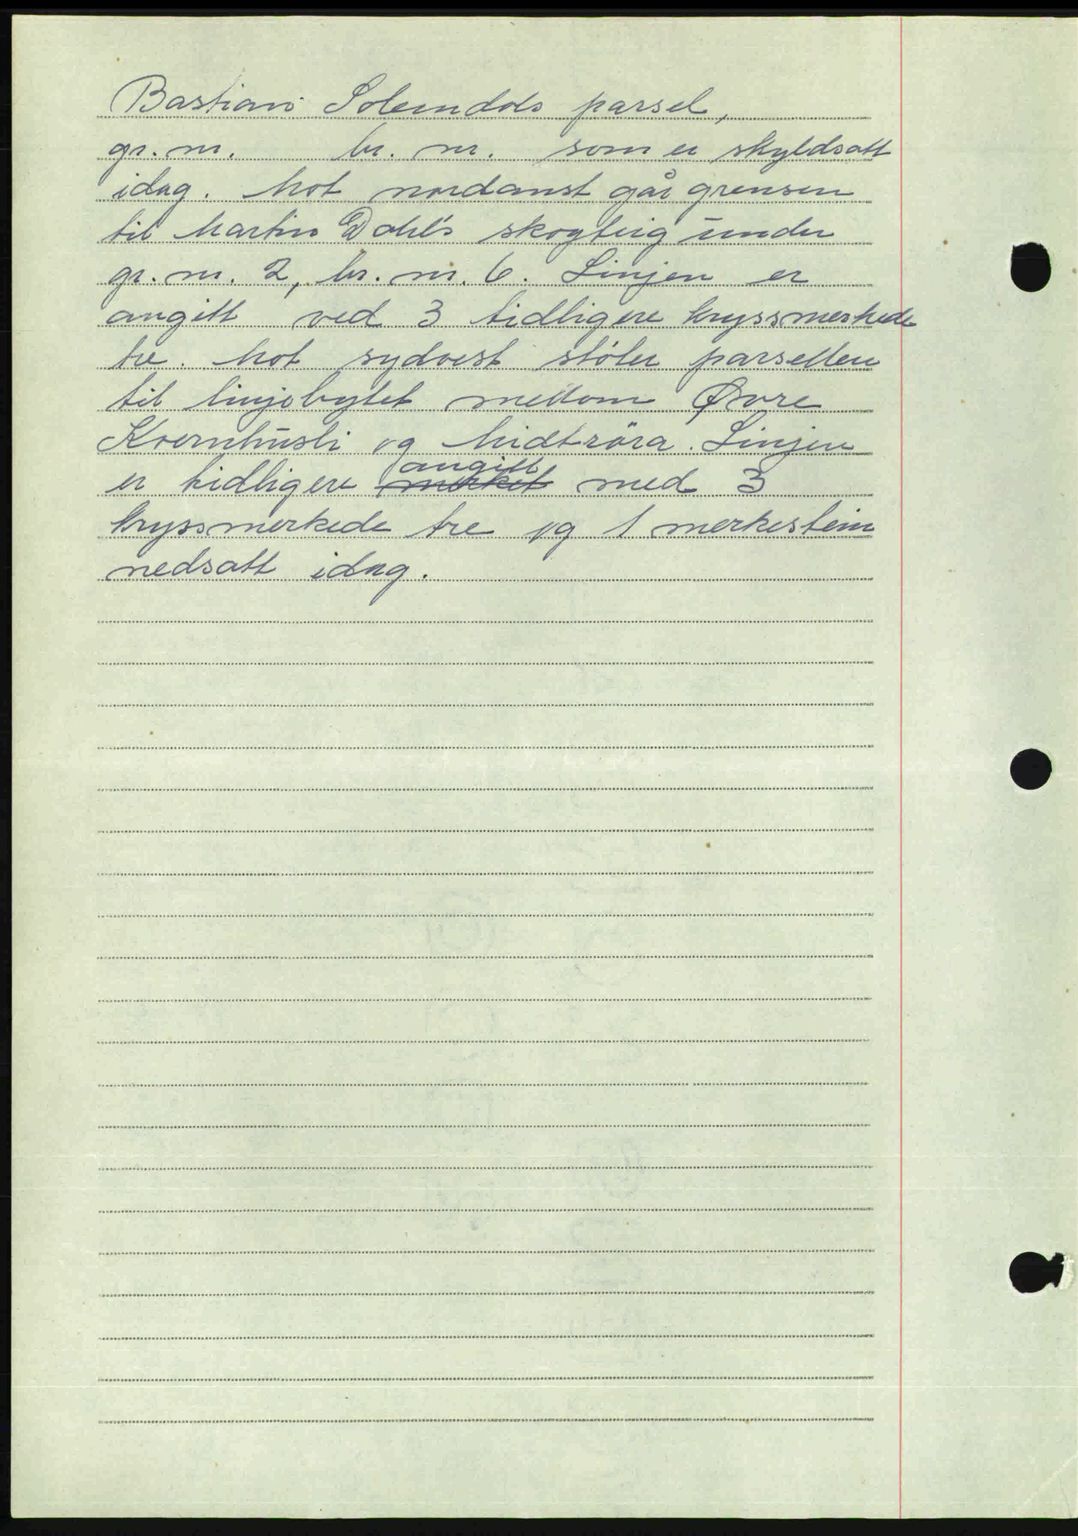 Bastian Solemdals parsel,
gr. nr. br. nr. som er skyldsatt
idag. Mot nordaust går grensen
til Martin Dahl's skogteig under
gr. nr. 2, br. nr. 6. Linjen er
angitt ved 3 tidligere kryssmerkede
tre. Mot sydvest støter parsellen
til linjebytet mellom Øvre
Kvernhusli og Midtröra. Linjen
er tidligere merket angitt med 3
kryssmerkede tre og 1 merkestein
nedsatt idag.